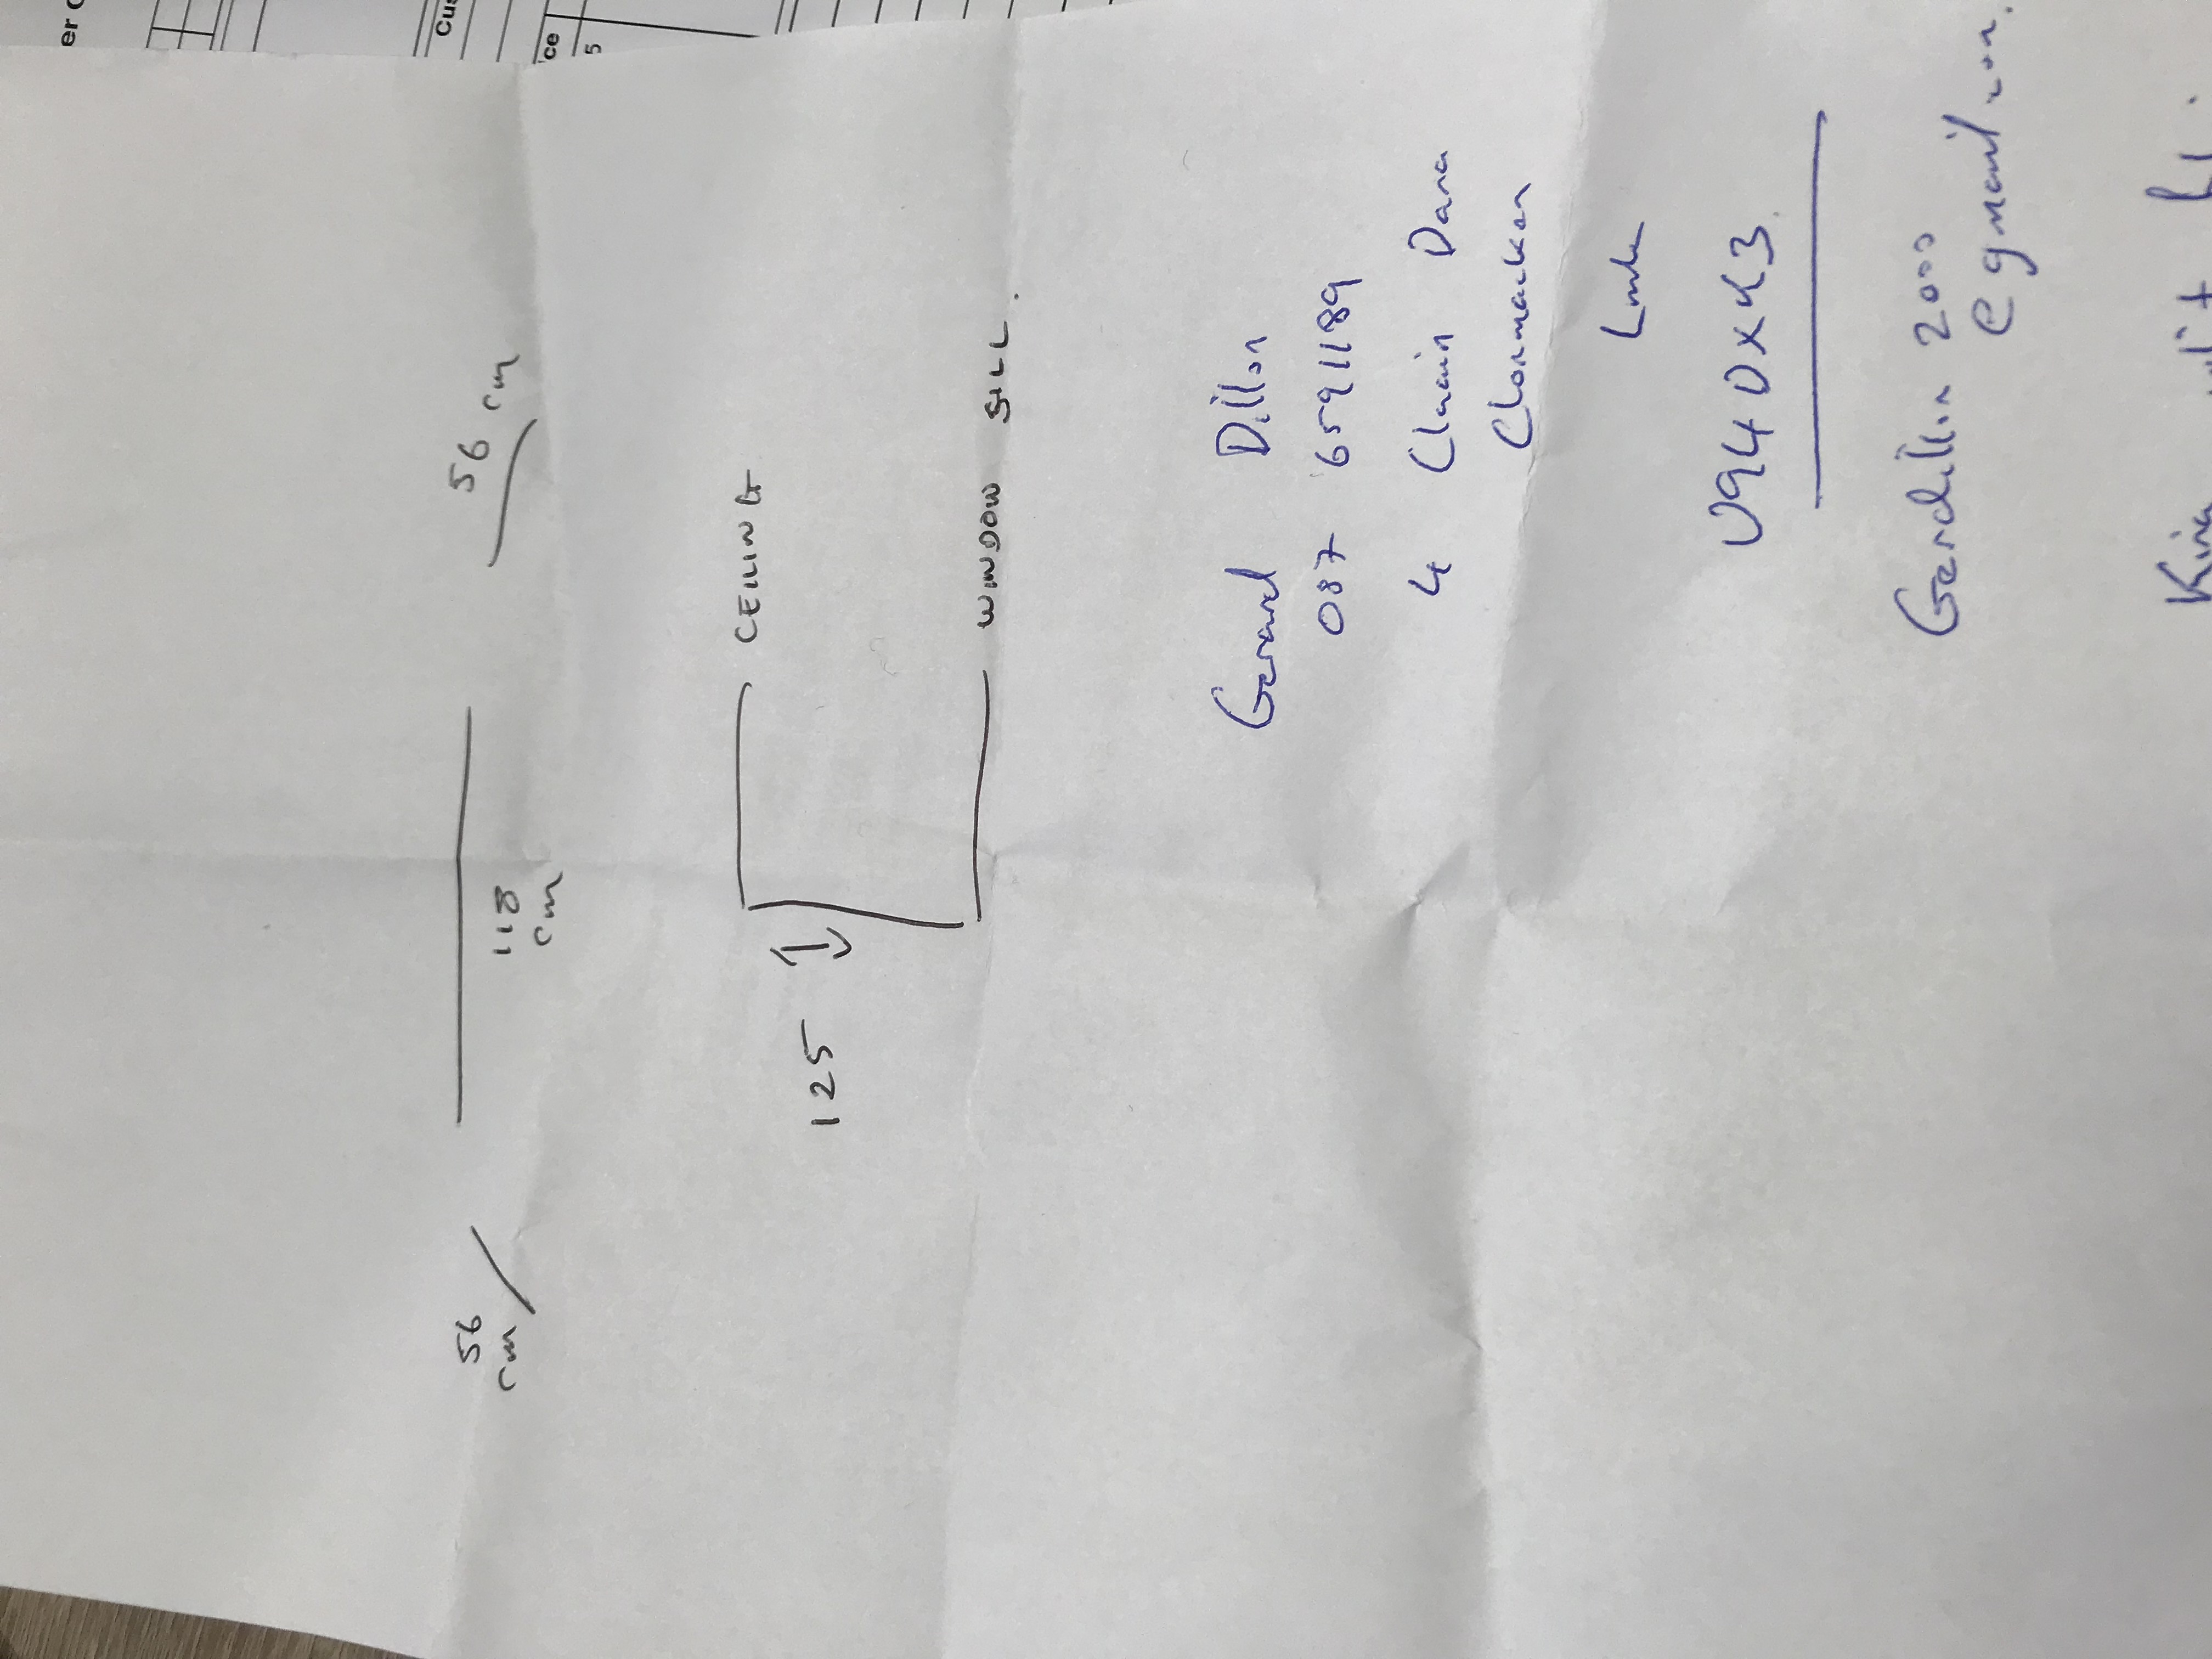 er C
Cus
ce
5
56 cm
118 cm
56 cm
CEILING
125
WINDOW SILL.
Gerard Dillon
087 6591189
4 Clarin Dana
Clonmacken
Lmk
V94DXK3.
Gerdillon 2000
@gmail.com.